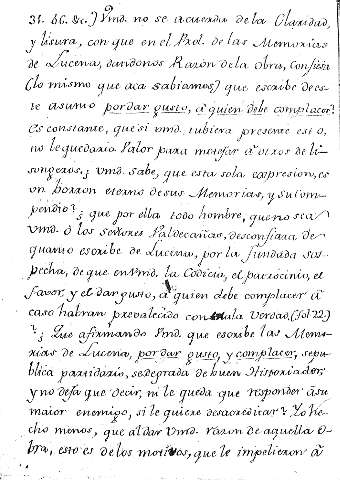 31. 66. &c.) Vmd. no se acuerda de la Claridad,
y lisura, con que en el Prol. de las Memorias
de Lucena, dandonos Razón dela Obra, confiesa
(lo mismo que aca sabiamos) que escribe de es-
te asumto por dar gusto, a quien debe complacer?
Es constante, que si vmd. tubiera presente esto,
no le quedaria Valor para motejar à otros de li-
songeros, ¿ vmd. sabe, que esta sola expresion, es
un borron eterno de sus Memorias, y su Com-
pendio?, ¿ que por ella todo hombre, que no sea
Vmd. ò los señores Valdecañas, desconfiara de
quanto escribe de Lucena, por la fundada Sos-
pecha, de que en Vmd. la Codicia, el patrocinio, el
favor, y el dar gusto, à quien debe complacer à
caso habran prevalecido con la Verdad, (fol 22.)
?¿ Que afirmando Vmd. que escribe las Memo-
rias de Lucena, por dar gusto, y complacer, se pu-
blica partidario, se degrada de buen Historiador,
y no deja que decir, ni le queda que responder à su
maior enemigo, si le quiere desacreditar? Yo he
cho menos, que al dar Vmd. razon de aquella O-
bra, esto es de los motivos, que le impelieron à